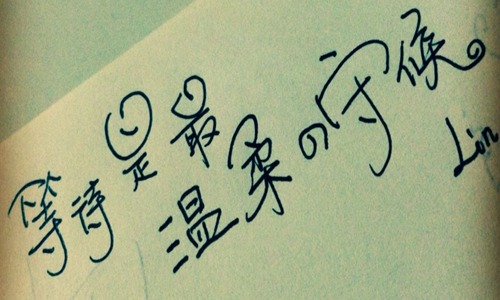 等待是最温柔の守候。
Lin